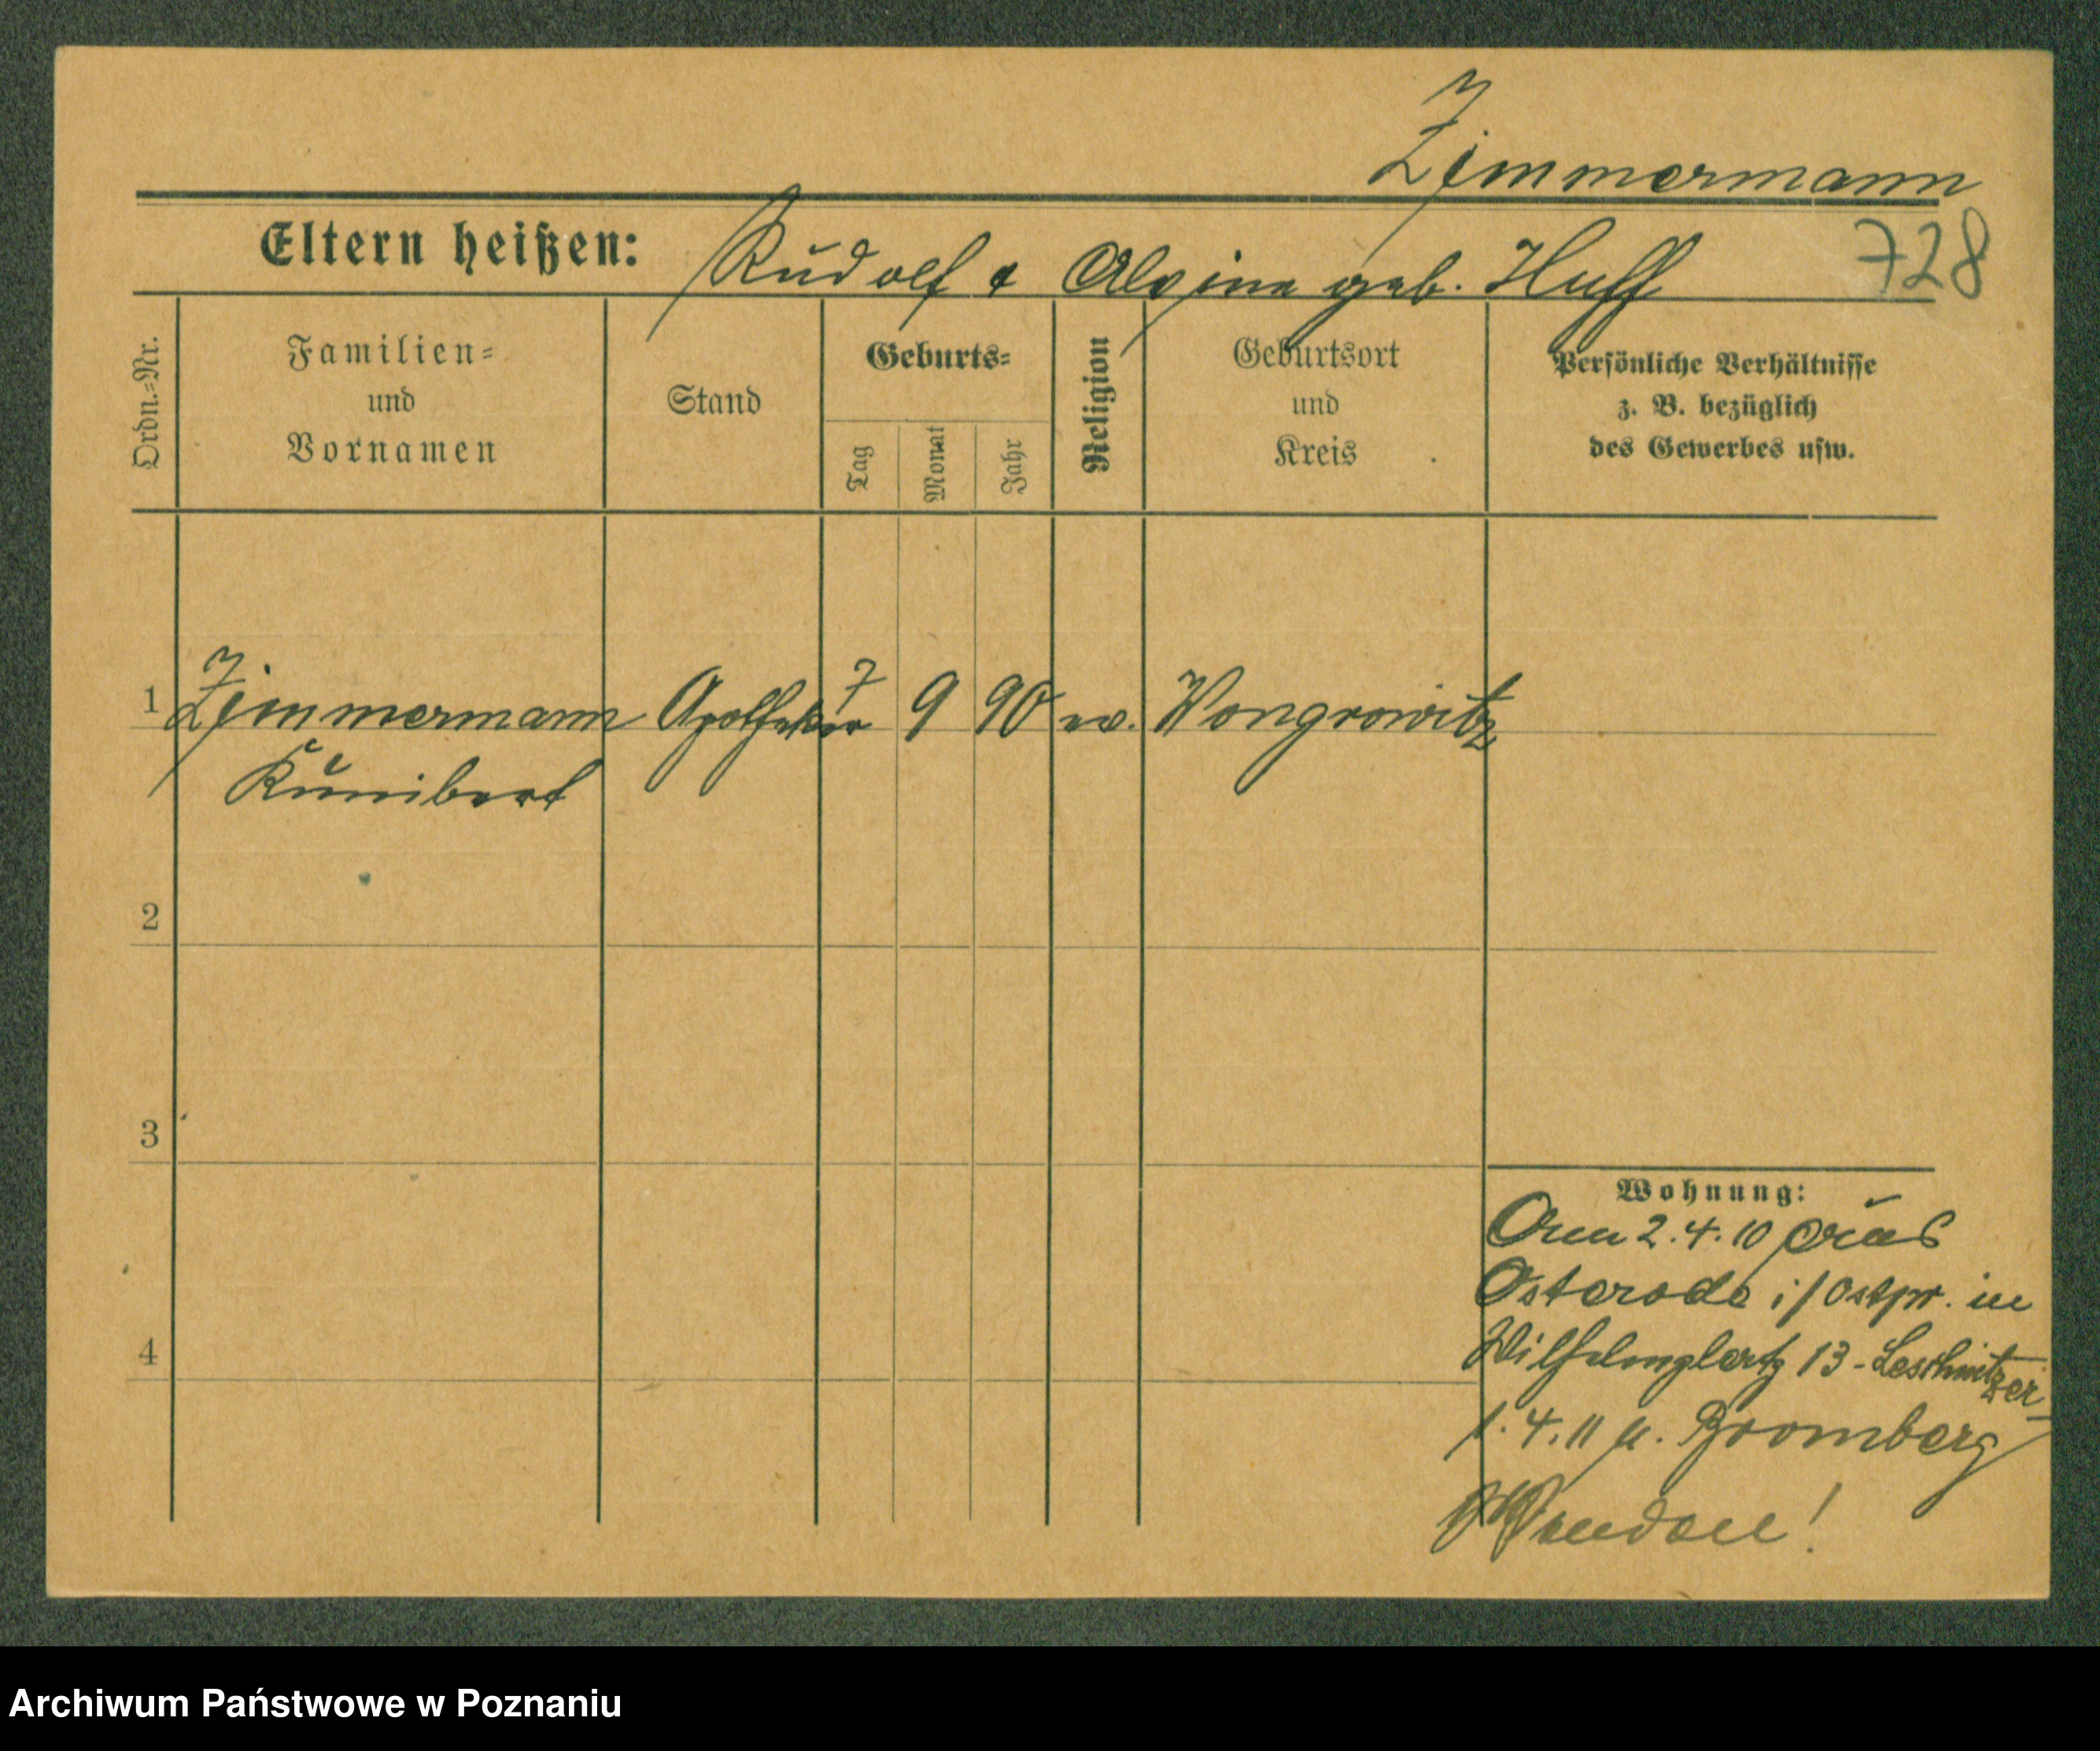 Zimmermann
Eltern heißen: Rudolf & Alvine geb. Huff 728
Ordn.=Nr.
Familien=
und
Vornamen
Stand
Geburts=
Tag
Monat
Jahr
Religion
Geburtsort
und
Kreis
Persönliche Verhältnisse
z. B. bezüglich
des Gewerbes usw.
1 Zimmermann Apotheker 7 9 90 ev. Wongrowitz
Kunibert
2
3
4
Wohnung:
2.4.10 aus
Osterode i/Ostpr. in
Wilhelmplatz 13 - Leschnitzer -
1.4.11 n. Bromberg
Wenden!
Archiwum Państwowe w Poznaniu